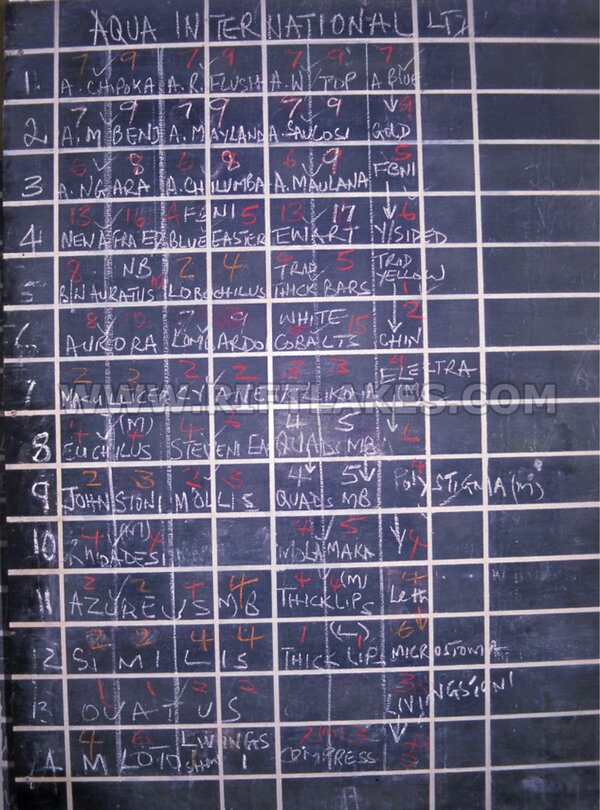 AQUA INTERNATIONAL LTD
7 9 7 9 7 9 7
1 A. CHIPOKA A. R. FLUSH A. W TOP A BLUE
7 9 7 9 7 9 9
2 A. M BENJ A. MAYLAND A. SAULOSI GOLD
6 8 6 8 6 9 5
3 A. NGARA A. CHILUMBA A. MAULANA FGNI
13 16 FGNI 5 13 17 6
4 NEN AFRA ED BLUE EASTER EWART Y/SIDED
8 NB 2 4 4 TRAD 5 TRAD YELLOW
5 BIN AURATUS 10 LOBOCHILUS THICK BARS 1
8 10 7 9 WHITE 15 2
AURORA LOMBARDO COBALTS CHIN
2 3 2 2 3 3 ELECTRA
WWW.RIFTLAKES.COM
4 (M) 4 4 4 5 6
8 EUCHILUS STEVENI QUADS MB
2 3 2 3 4 5 4
9 JOHNSTONI MOLLIS QUADS MB POLYSTIGMA (M)
4 (M) 4 4 5 4
10 RHOADESI
2 2 4 4 4 4 (M) 4
11 AZUREUS MB THICKLIPS Leth
2 2 4 4 1 (L) 1 6
12 SIMILIS THICK LIPS MICROSTOMA
1 1 2 2 3
13 OVATUS LIVINGSTONI
4 6 LIVINGS
MLOTO COMPRESS